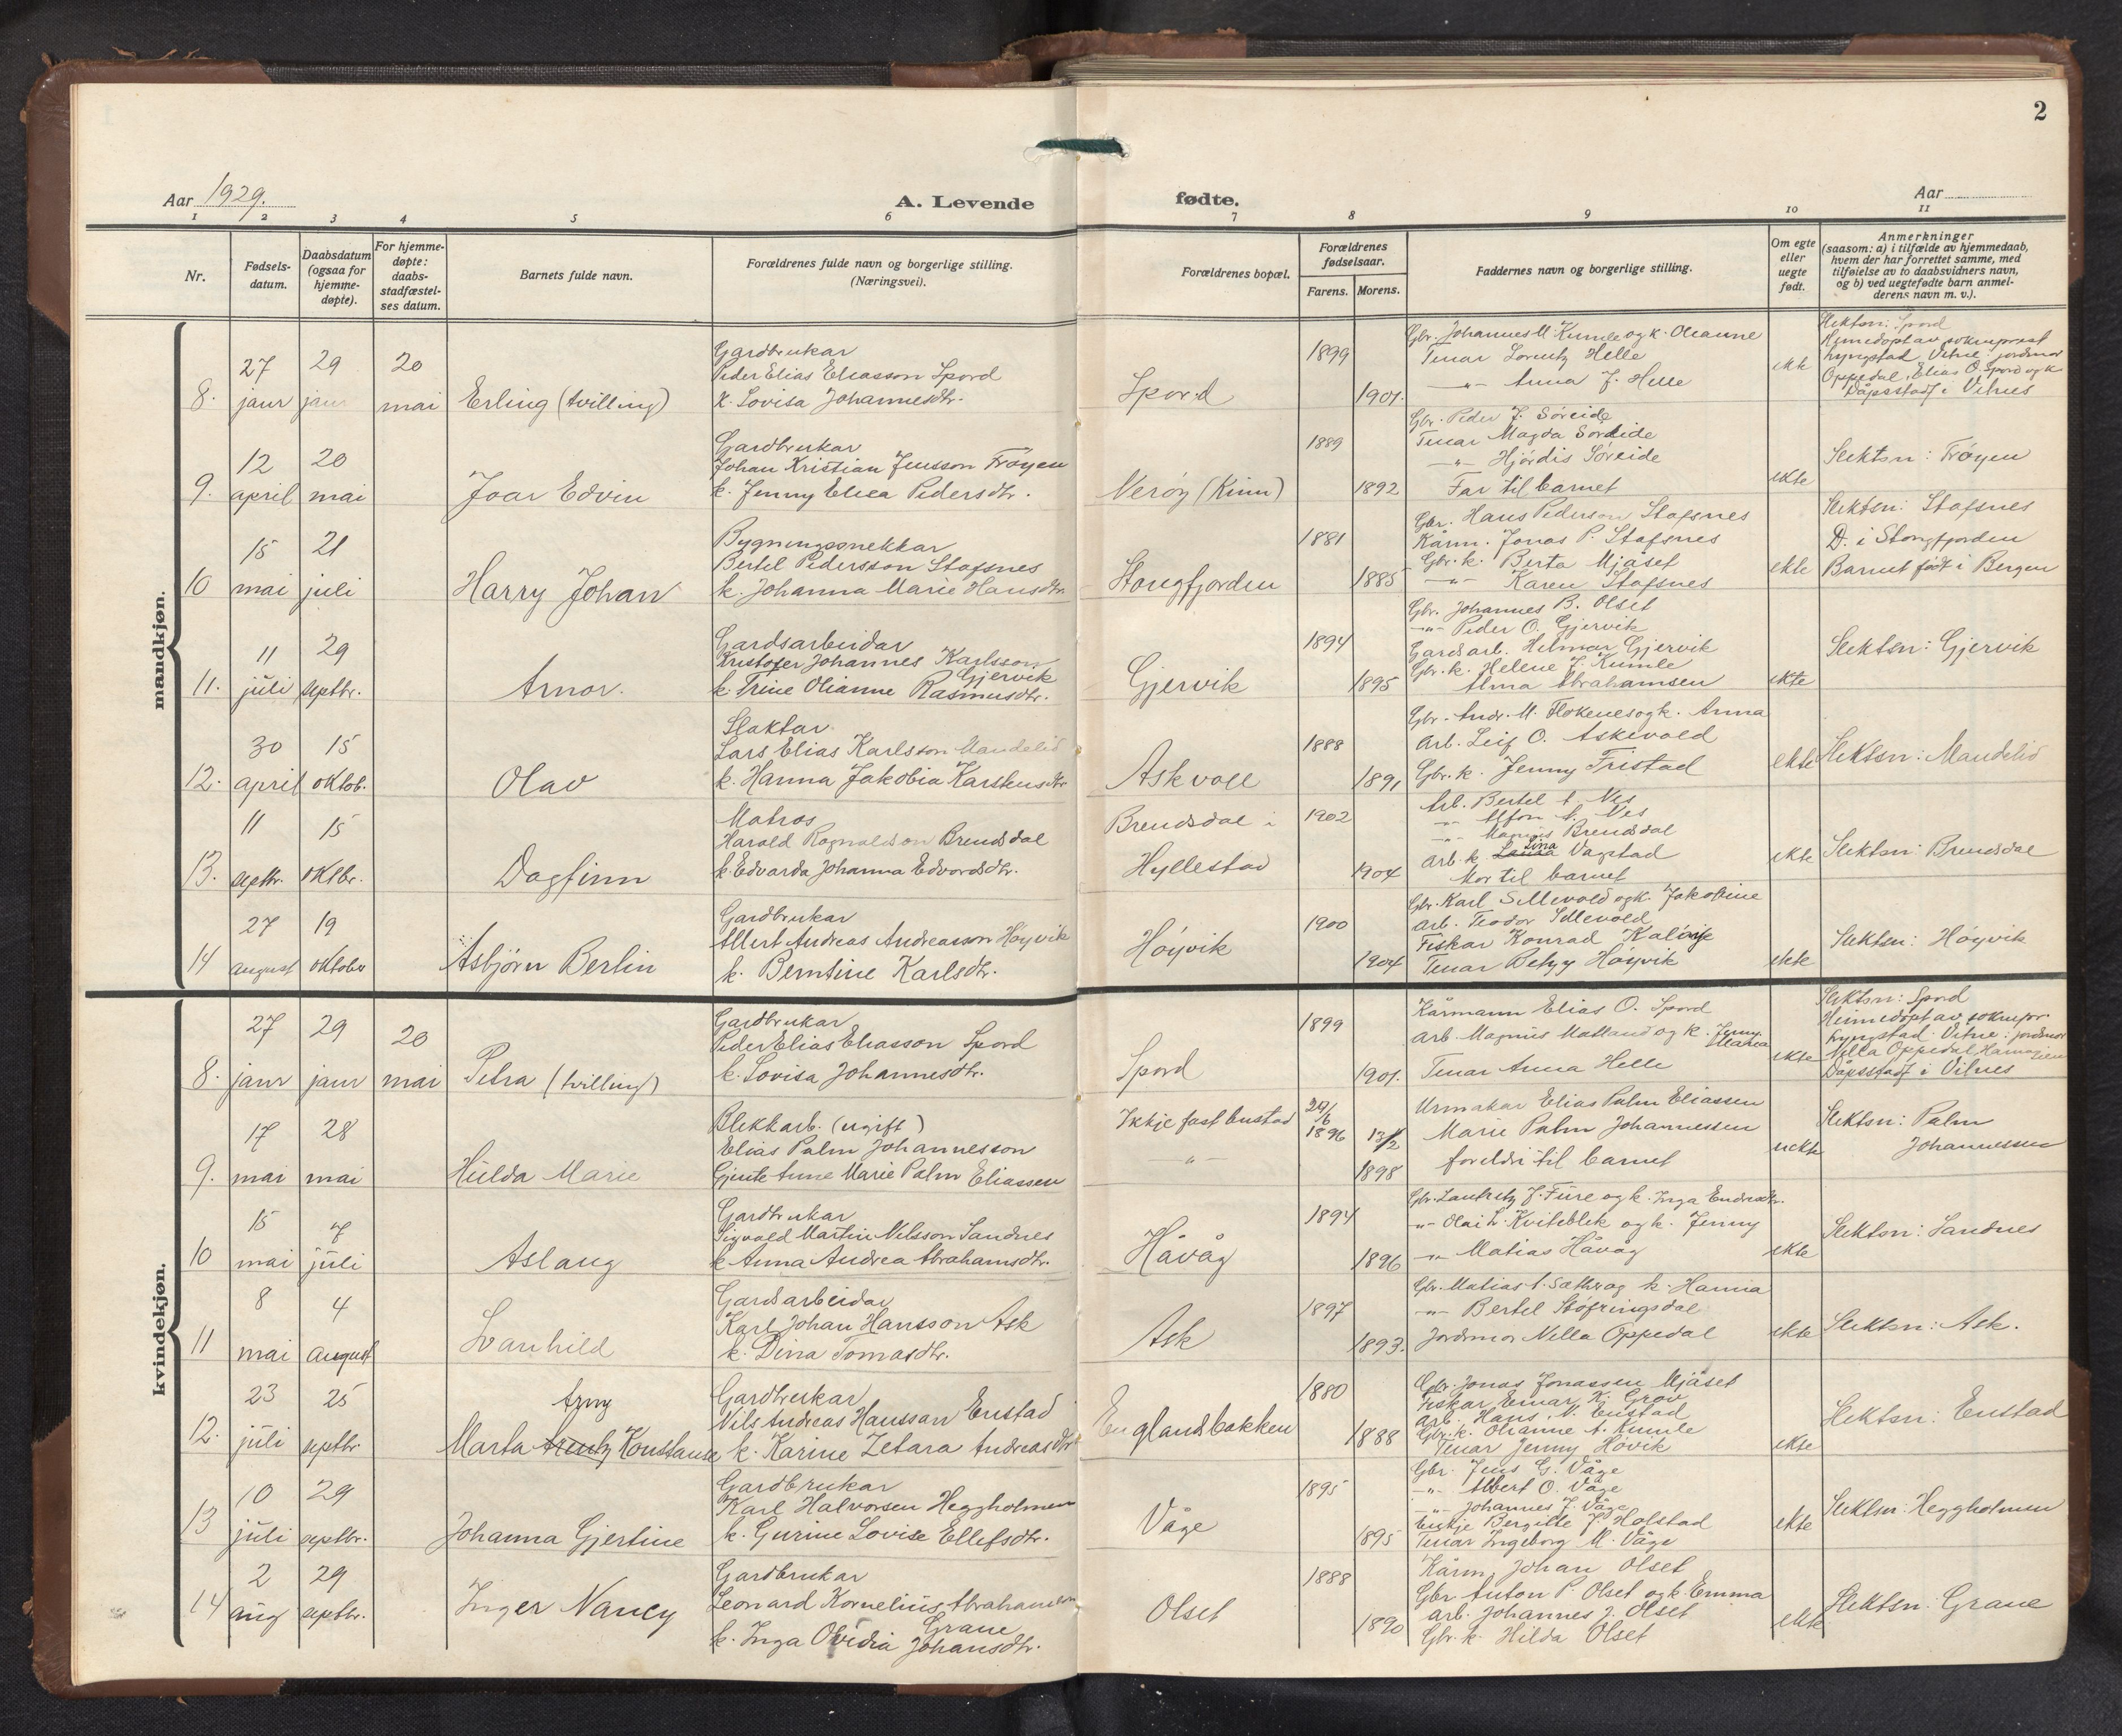 2
Aar 1929.
A. Levende
fødte.
Aar
1 2 3 4 5 6 7 8 9 10 11
Nr.
Fødsels-
datum.
Daabsdatum
(ogsaa for
hjemme-
døpte).
For hjemme-
døpte:
daabs-
stadfæstel-
ses datum.
Barnets fulde navn.
Forældrenes fulde navn og borgerlige stilling.
(Næringsvei).
Forældrenes bopæl.
Forældrenes
fødselsaar.
Farens. Morens.
Faddernes navn og borgerlige stilling.
Om egte
eller
uegte
født.
Anmerkninger
(saasom: a) i tilfælde av hjemmedaab,
hvem der har forrettet samme, med
tilføielse av to daabsvidners navn,
og b) ved uegtefødte barn anmel-
derens navn m. v.).
mandkjøn.
8. 27 janr 29 janr 20 mai
Erling (tvilling)
Gardbrukar
Peder Elias Eliasson Spord
k. Lovisa Johannesdtr.
Spord
1899
1901.
Gbr. Johannes M. Kumle og k. Oleanne
Tenar Lorentz Helle
-"- Anna J. Helle
ekte
Slektsn: Spord
Heimedøpt av sokneprest
Lyngstad. Vitne: jordmor
Oppedal, Elias O. Spord og k
Dåpsstadf. i Vilnes
9. 12 april 20 mai
Joar Edvin
Gardbrukar
Johan Kristian Jensson Trøyen
k. Jenny Elica Pedersdtr.
Nerøy (Kinn)
1889
1892
Gbr. Peder J. Søreide
Tenar Magda Søreide
-"- Hjørdis Søreide
Far til barnet
ekte
Slektsn: Trøyen
10 15 mai 21 juli
Harry Johan
Bygningssnekkar
Bertel Pedersson Stafsnes
k. Johanna Marie Hansdtr.
Stongfjorden
1881
1885
Gbr. Hans Pederson Stafsnes
Kårm. Jonas P. Stafsnes
Gbr. k. Berta Mjåset
-"- Karen Stafsnes
ekte
Slektsn: Stafsnes
D. i Stongfjorden
Barnet født i Bergen
11. 11 juli 29 septbr.
Arnor.
Gardsarbeidar
Kristofer Johannes Karlsson
Gjervik
k. Trine Olianne Rasmusdtr.
Gjervik
1894
1895
Gbr. Johannes B. Olset
-"- Peder O. Gjervik
Gardsarb. Helmar Gjervik
Gbr. k. Helene J. Kumle
Alma Abrahamsen
ekte
Slektsn: Gjervik
12. 30 april 15 oktob.
Olav
Slaktar
Lars Elias Karlsson Mandelid
k. Hanna Jakobia Karstensdtr
Askvoll
1888
1891
Gbr. Andr. M. Flokenes og k. Anna
Arb. Leif O. Askevold
Gbr. k. Jenny Fristad
ekte
Slektsn: Mandelid
13. 11 septbr. 15 oktbr.
Dagfinn
Matros
Harald Ragnaldson Brendsdal
k. Edvarda Johanna Edvardsdtr.
Brendsdal i
Hyllestad
1902
1904
Arb. Bertel A. Nes
-"- Alfon A. Nes
-"- Magnus Brendsdal
Lina
Arb. k. Vagstad
Mor til barnet
ekte
Slektsn: Brendsdal
14 27 august 19 oktober
Asbjørn Berlin
Gardbrukar
Albert Andreas Andreasson Høyvik
k. Berntine Karlsdtr.
Høyvik
1900
1904
Gbr. Karl Sellevold og k. Jakobine
arb. Teodor Sellevold
Fiskar Konrad Kalvik
Tenar Betzy Høyvik
ekte
Slektsn: Høyvik
kvindekjøn.
8. 27 janr 29 janr 20 mai
Petra (tvilling)
Gardbrukar
Peder Elias Eliasson Spord
k. Lovisa Johannesdtr.
Spord
1899
1901.
Kårmann Elias O. Spord
arb. Magnus Matland og k. Jenny
Tenar Anna Helle
ekte
Slektsn: Spord
Heimedøpt av soknepr.
Lyngstad. Vitne: jordmor
Nella Oppedal,
Dåpsstadf. i Vilnes
9. 17 mai 28 mai
Hulda Marie
Blekkarb. (ugift)
Elias Palm Johannesson
Gjente Anne Marie Palm Eliassen
Ikkje fast bustad
-"-
29/6
1896
13/2
1898
Urmakar Elias Palm Eliassen
Marie Palm Johannessen
foreldri til barnet
uekte
Slektsn: Palm
Johannessen
10 15 mai 7 juli
Aslaug
Gardbrukar
Sigvald Martin Nilsson Sandnes
k. Anna Andrea Abrahamsdtr.
Håvåg
1894
1896
Gbr. Lauritz J. Fure og k. Inga Endresdtr.
-"- Olai L. Kviteblek og k. Jenny
-"- Matias Håvåg
ekte
Slektsn: Sandnes
11 8 mai 4 august
Svanhild
Gardsarbeidar
Karl Johan Hansson Ask
k. Dina Tomasdtr.
Ask
1897
1893.
Gbr. Matias A. Sætre og k. Hanna
-"- Bertel Støfringsdal
Jordmor Nella Oppedal
ekte
Slektsn: Ask.
12. 23 juli 25 septbr
Arny
Marta Konstanse
Gardbrukar
Nils Andreas Hansson Enstad
k. Karine Zetara Andreasdtr
Englandsbakken
1880
1888
Gbr. Jonas Jonassen Mjåset
Fiskar Einar K. Grov
Arb. Hans N. Enstad
Gbr. k. Olianne A. Kumle
Tenar Jenny Høvik
ekte
Slektsn: Enstad
13 10 juli 29 septbr.
Johanna Gjertine
Gardbrukar
Karl Halvorsen Heggholmen
k. Gurine Lovise Ellefsdtr.
Våge
1895
1895
Gbr. Jens G. Våge
-"- Albert O. Våge
-"- Johannes J. Våge
Enkje Bergitte J. Hofstad
Tenar Ingeborg M. Våge
ekte
Slektsn: Heggholmen
14 2 aug 29 septbr.
Inger Nancy
Gardbrukar
Leonard Kornelius Abrahamson
Grane
k. Inga Ovidia Johansdtr.
Olset
1888
1890
Kårm. Johan Olset
Gbr. Anton P. Olset og k. Emma
arb. Johannes J. Olset
Gbr. k. Hilda Olset
ekte
Slektsn: Grane